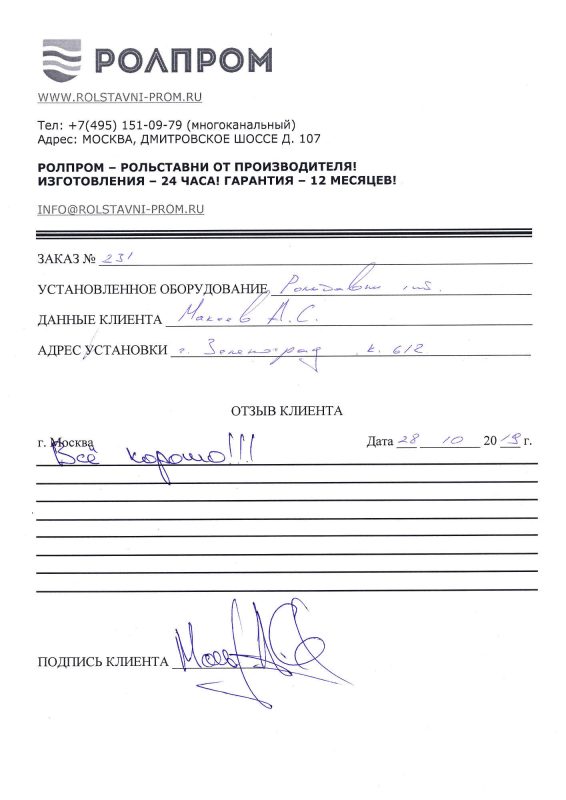 РОЛПРОМ
WWW.ROLSTAVNI-PROM.RU
Тел: +7(495) 151-09-79 (многоканальный)
Адрес: МОСКВА, ДМИТРОВСКОЕ ШОССЕ Д. 107
РОЛПРОМ – РОЛЬСТАВНИ ОТ ПРОИЗВОДИТЕЛЯ!
ИЗГОТОВЛЕНИЯ – 24 ЧАСА! ГАРАНТИЯ – 12 МЕСЯЦЕВ!
INFO@ROLSTAVNI-PROM.RU
ЗАКАЗ № 231
УСТАНОВЛЕННОЕ ОБОРУДОВАНИЕ Рольставни 1 шт.
ДАННЫЕ КЛИЕНТА Макеев А.С.
АДРЕС УСТАНОВКИ г. Зеленоград, к. 612
ОТЗЫВ КЛИЕНТА
г. Москва Дата 28 10 2019 г.
Всё хорошо!!!
ПОДПИСЬ КЛИЕНТА